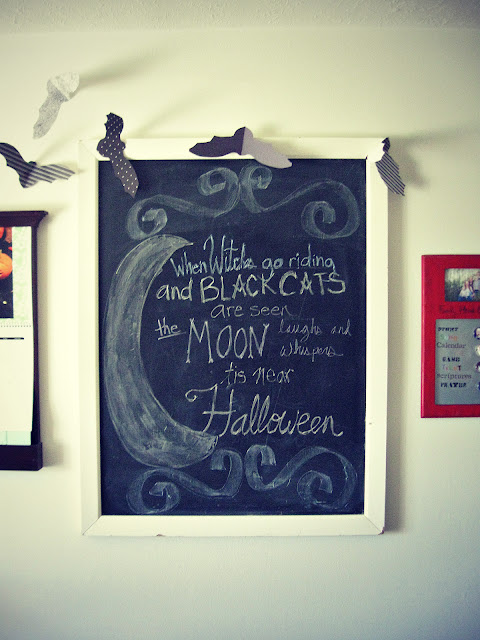 When Witches go riding
and BLACK CATS
are seen
the MOON laughs and
whispers
'tis near
Halloween
Calendar
Scriptures